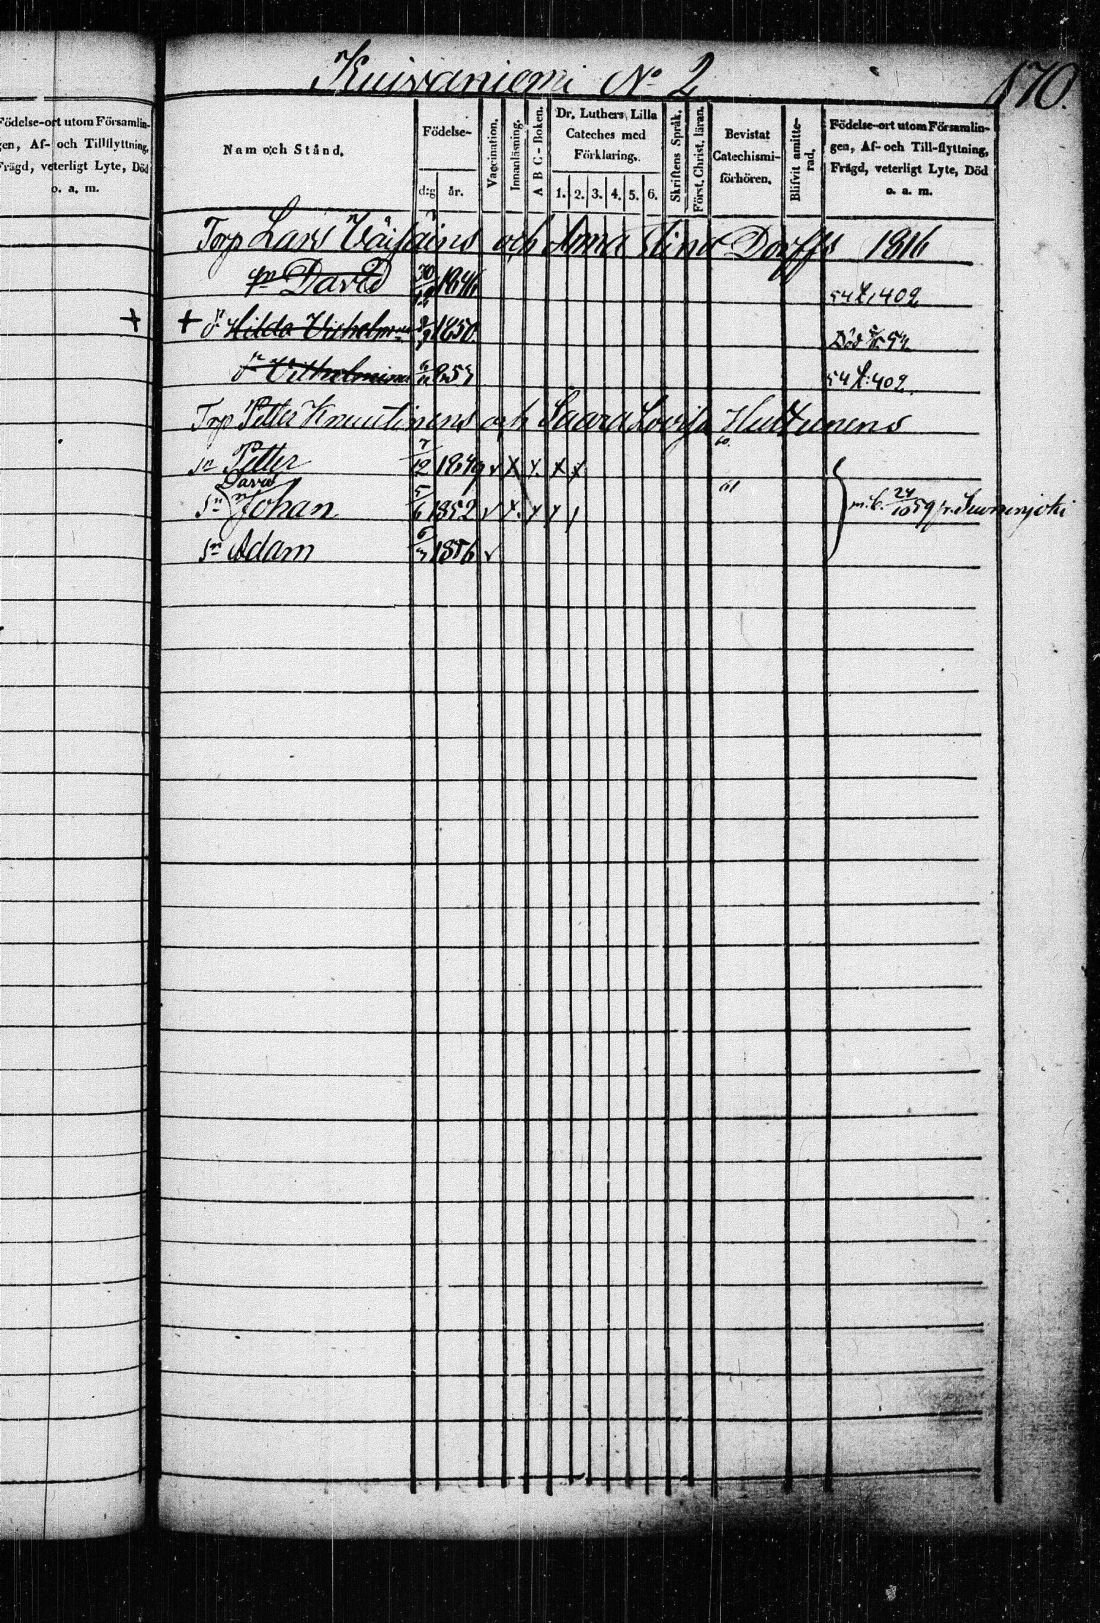 Kuivaniemi No 2
570.
Födelse-ort utom Församlin-
gen, Af- och Tillflyttning,
Frägd, veterligt Lyte, Död
o. a. m.
Nam och Stånd,
Födelse-
d:g år.
Vaccination.
Innanläsning.
A B C - Boken.
Dr. Luthers Lilla
Cateches med
Förklaring.
1. 2. 3. 4. 5. 6.
Skriftens Språk,
Först. Christ. läran.
Bevistat
Catechismi-
förhören.
Blifvit amitte-
rad,
Födelse-ort utom Församlin-
gen, Af- och Till-flyttning,
Frägd, veterligt Lyte, Död
o. a. m.
Torp Lars och Anna Stina Dorffs 1816
sn David 1846 54 402
+ + Hilda Vilhelmina 1850 Död
Vilhelmina 54 402
Torp Petter och Saara Lovisa Huttunens
sn Petter 7/12 1849 v x x x 60
David
sn Johan 5/6 1852 v x 61 24/10 59
sn Adam 1856 v